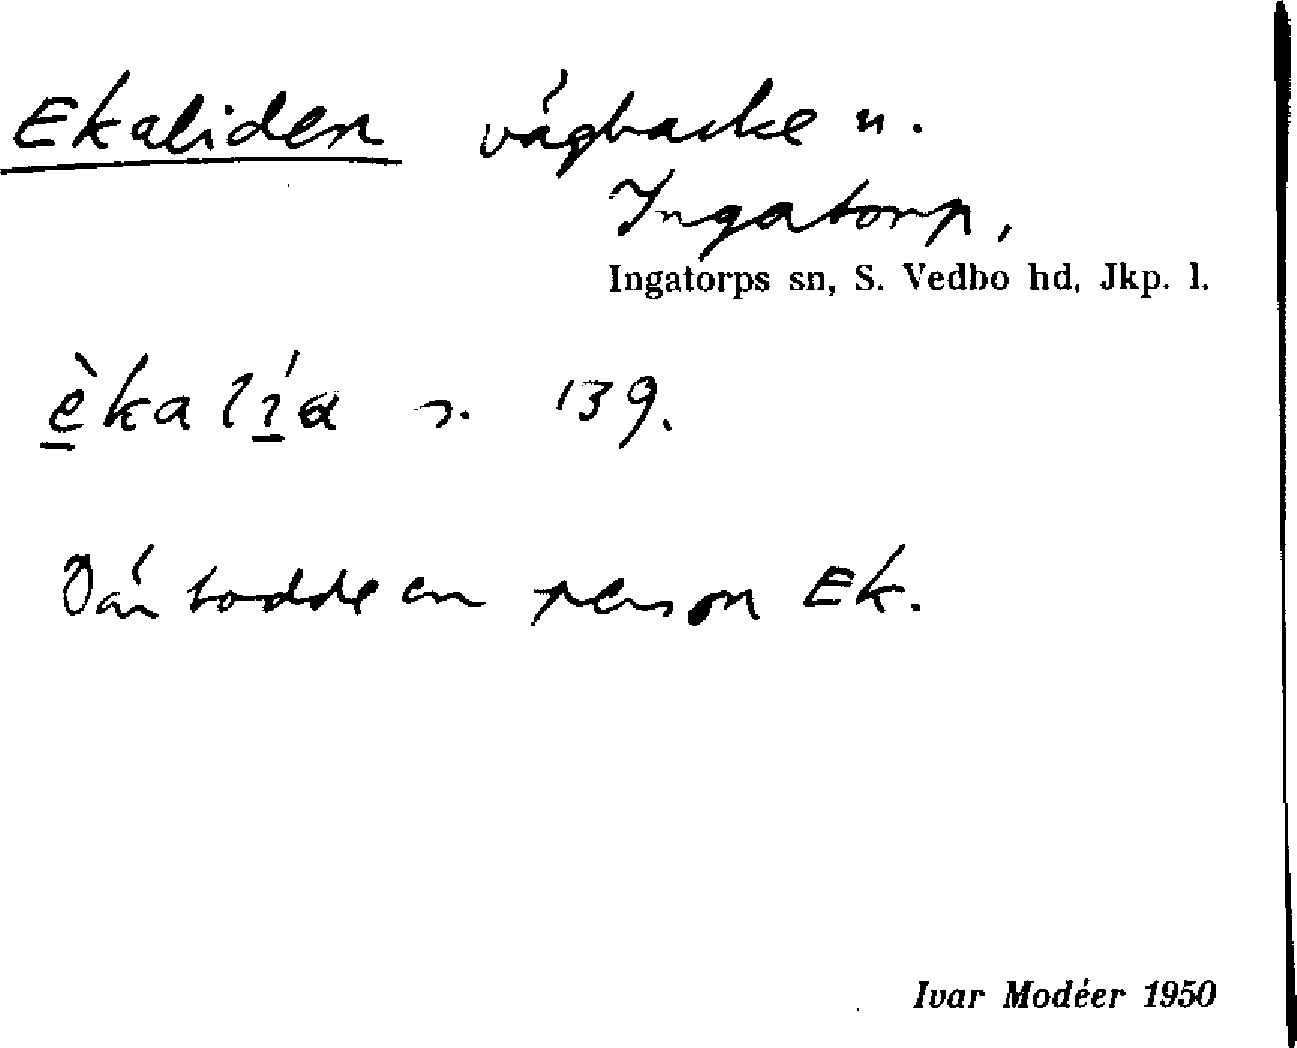 Ekaliden vägbacke n.
Ingatorp,
Ingatorps sn, S. Vedbo hd, Jkp. l.
èkalíα s. 139.
Där bodde en person Ek.
Ivar Modéer 1950